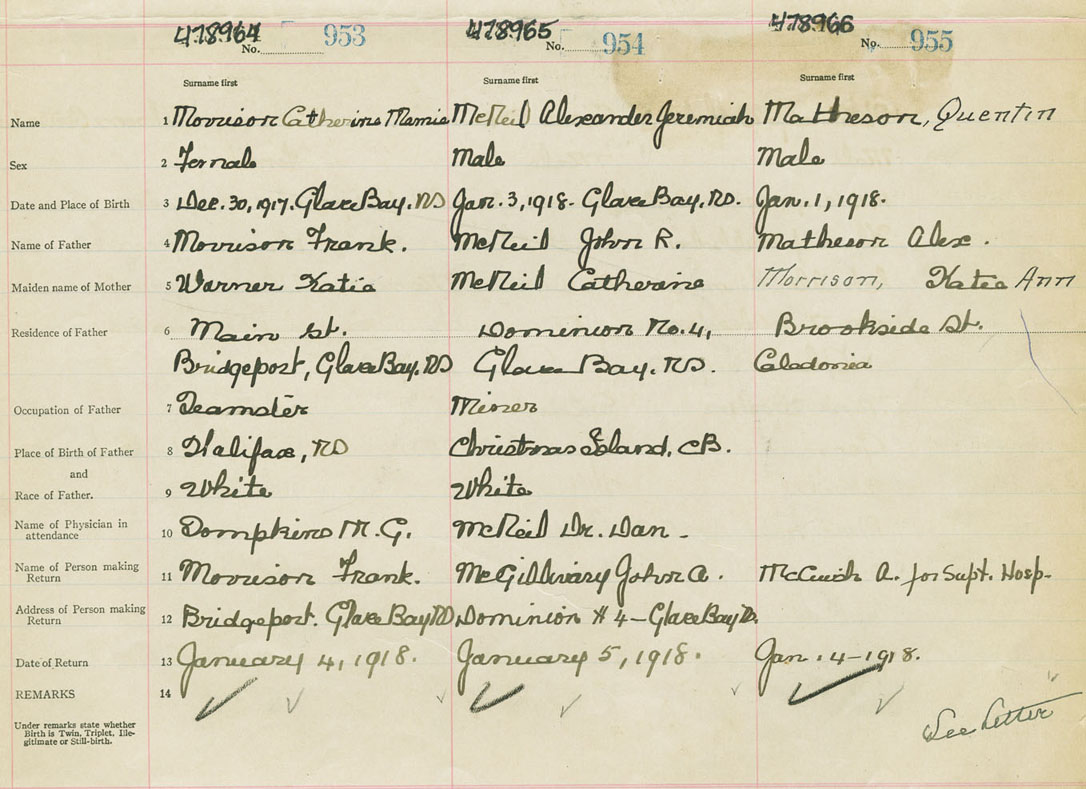 478964 478965 478966
No. 953 No. 954 No. 955
Surname first Surname first Surname first
Name 1 Morrison Catherine Mamie McNeil Alexander Jeremiah Matheson, Quentin
Sex 2 Female Male Male
Date and Place of Birth 3 Dec. 30, 1917. Glace Bay. NS Jan. 3, 1918. Glace Bay. NS. Jan. 1, 1918.
Name of Father 4 Morrison Frank. McNeil John R. Matheson Alex.
Maiden name of Mother 5 Warner Katie McNeil Catherine Morrison, Katie Ann
Residence of Father 6 Main St. Dominion No. 4, Brookside St.
Bridgeport, Glace Bay. NS Glace Bay. NS. Caledonia
Occupation of Father 7 Teamster Miner
Place of Birth of Father 8 Halifax, NS Christmas Island, CB.
and
Race of Father. 9 White White
Name of Physician in
attendance 10 Tompkins M. G. McNeil Dr. Dan -
Name of Person making
Return 11 Morrison Frank. McGillivary John A. McCuish A. for Supt. Hosp-
Address of Person making
Return 12 Bridgeport. Glace Bay NS Dominion # 4 - Glace Bay NS.
Date of Return 13 January 4, 1918. January 5, 1918. Jan. 14-1918.
REMARKS 14
Under remarks state whether
Birth is Twin, Triplet, Ille-
gitimate or Still-birth.
See Letter